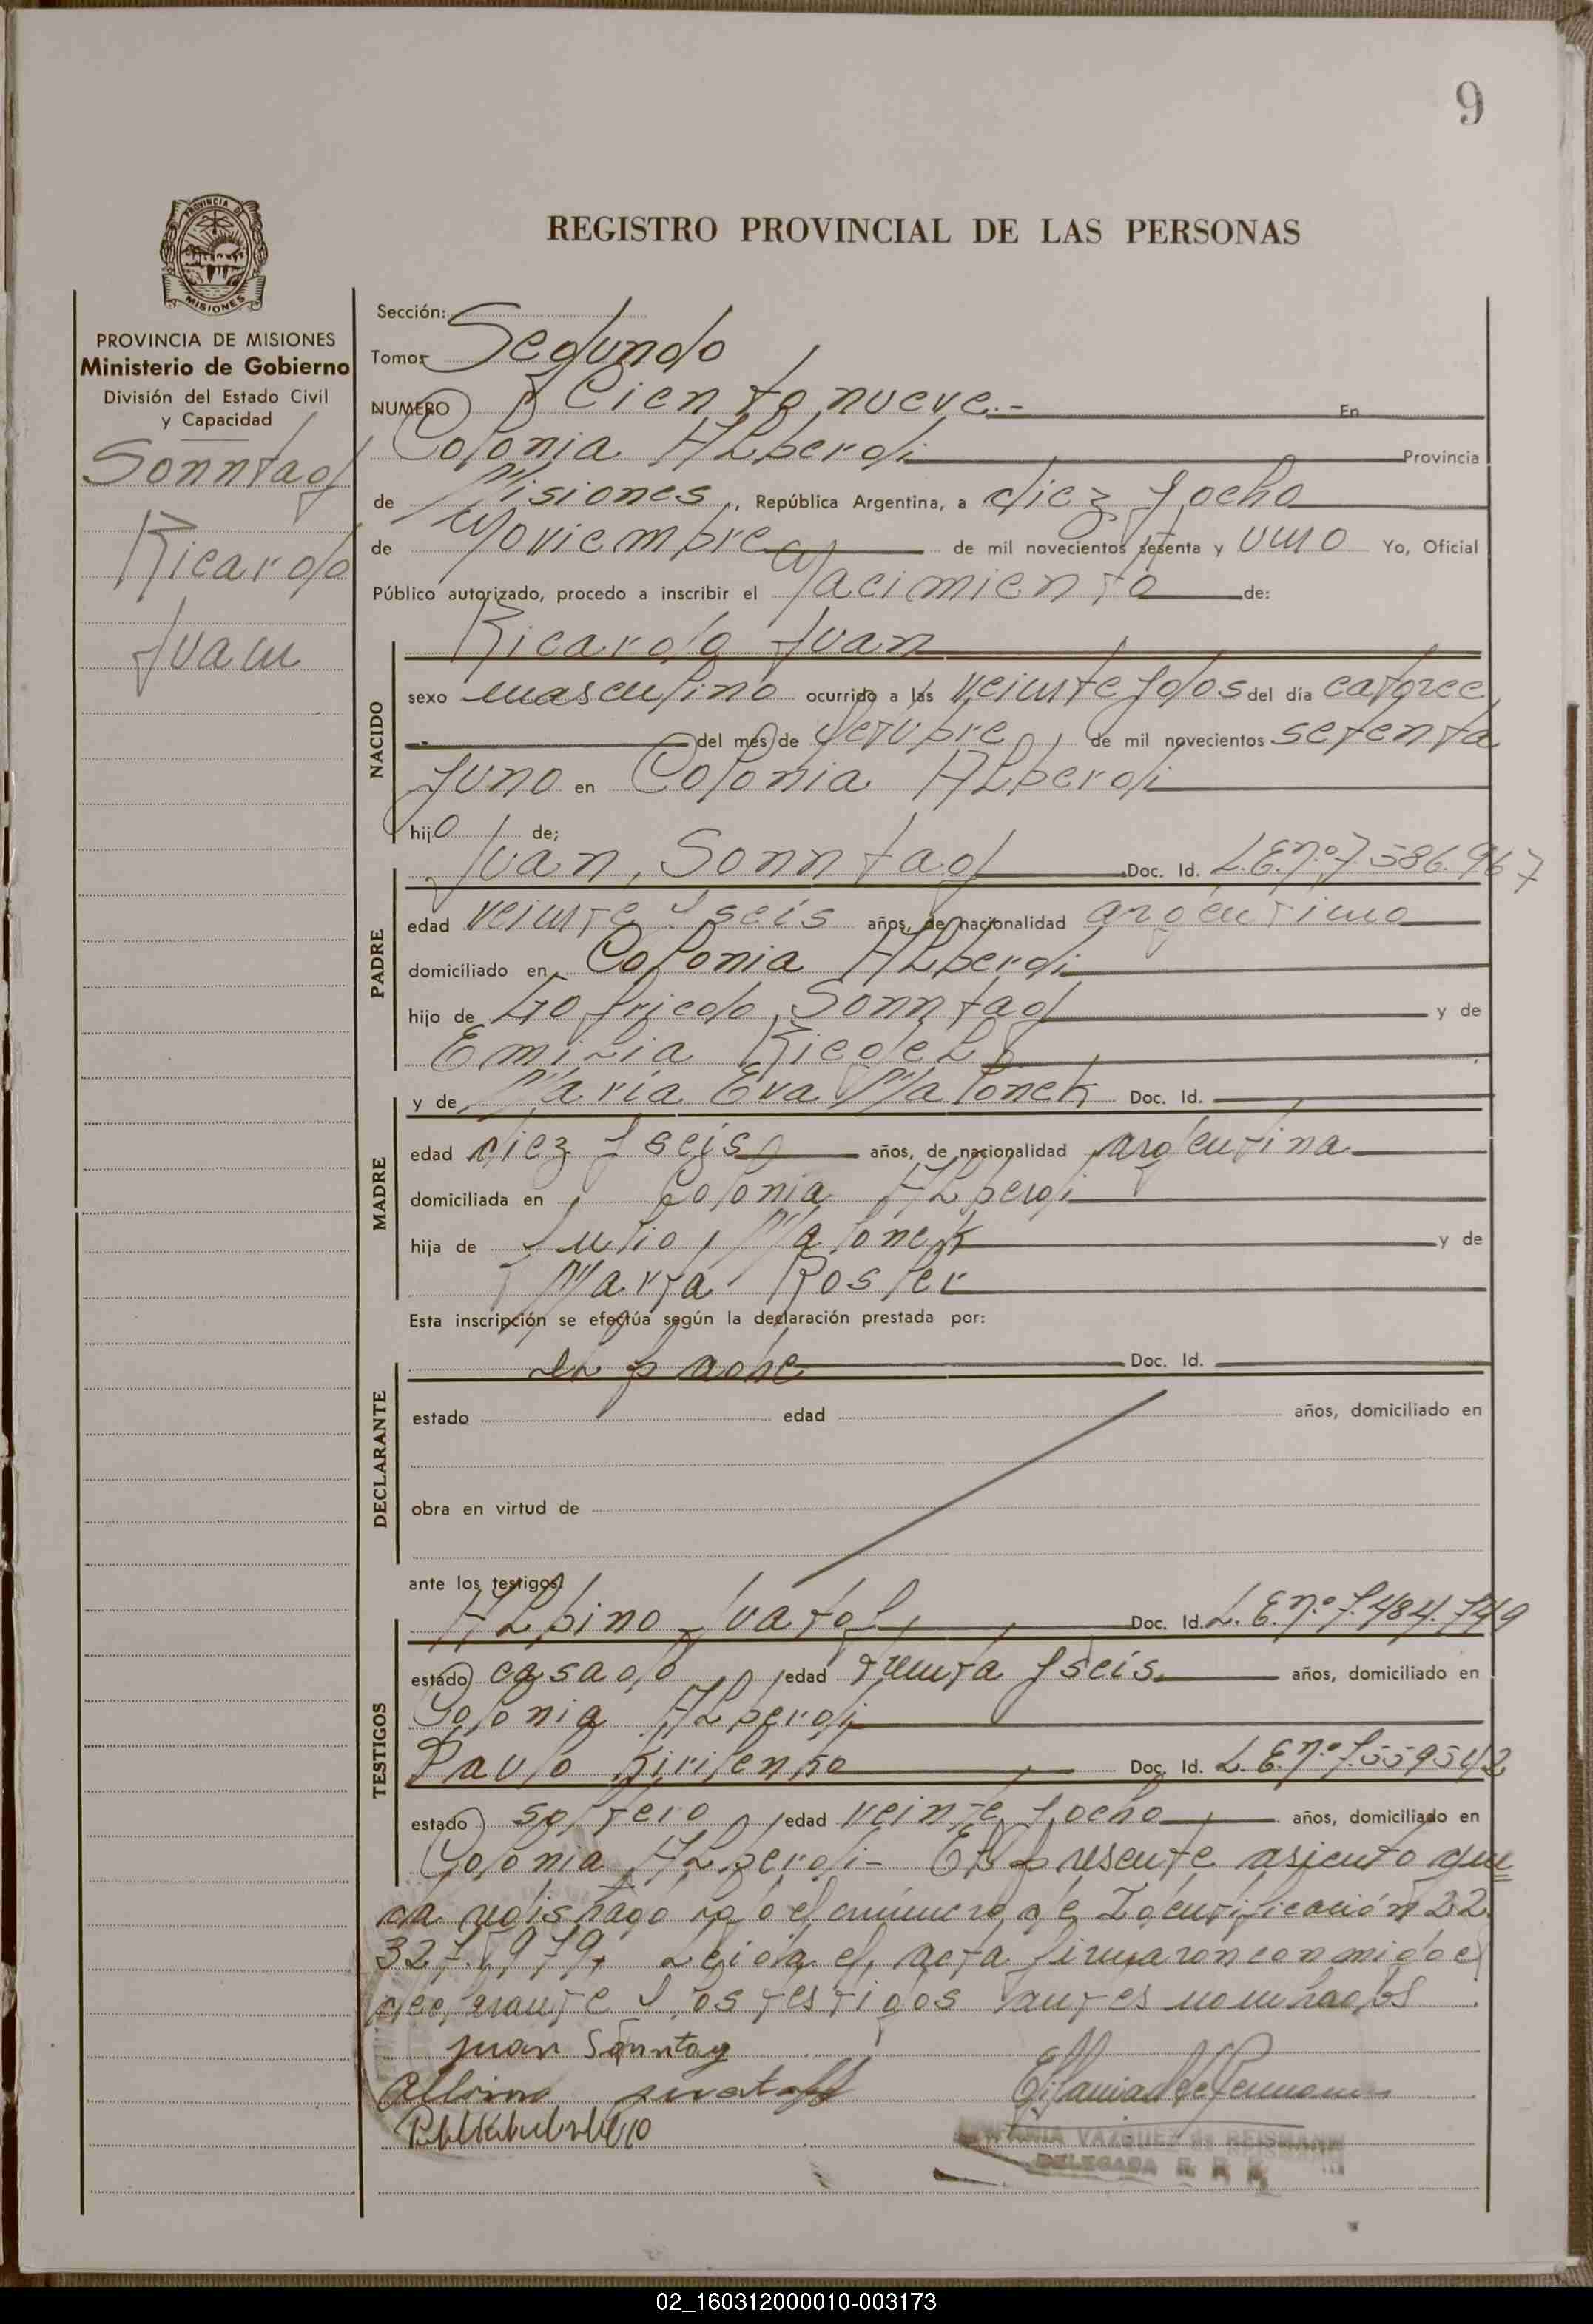 9
PROVINCIA DE
MISIONES
REGISTRO PROVINCIAL DE LAS PERSONAS
PROVINCIA DE MISIONES
Ministerio de Gobierno
División del Estado Civil
y Capacidad
Sonntag
Ricardo
Juan
Sección:
Tomo: Segundo
NUMERO Ciento nueve.- En
Colonia ALberdi Provincia
de Misiones, República Argentina, a diez y ocho
de Noviembre de mil novecientos setenta y uno Yo, Oficial
Público autorizado, procedo a inscribir el Nacimiento de:
NACIDO
Ricardo Juan
sexo masculino ocurrido a las veinte y dos del día catorce
del mes de Octubre de mil novecientos setenta
y uno en Colonia ALberdi
hijo de;
PADRE
Juan, Sonntag Doc. Id. L.E.nº.7.586.967
edad veinte y seis años, de nacionalidad argentino
domiciliado en Colonia ALberdi
hijo de Gofriedo, Sonntag y de
EmiLia RiedeL
MADRE
y de María Eva Malonek Doc. Id.
edad diez y seis años, de nacionalidad argentina
domiciliada en Colonia ALberdi
hija de Julio, Malonek y de
Marta Rosler
Esta inscripción se efectúa según la declaración prestada por:
DECLARANTE
el padre Doc. Id.
estado edad años, domiciliado en
obra en virtud de
ante los testigos:
TESTIGOS
ALbino Doc. Id. L.E.nº.7.484.749
estado casado edad treinta y seis años, domiciliado en
Colonia ALberdi
Paulo Kirilenko Doc. Id. L.E.nº.7.559542
estado soltero edad veinte y ocho años, domiciliado en
Colonia ALberdi- EL presente asiento que
da registrado bajo el número de Identificación 22.
327.979, Leida el acta firmaron conmigo el
declarante y los testigos antes nombrados
Juan Sonntag
VAZQUEZ de REISMANN
DELEGADA R. R. P.
02_160312000010-003173